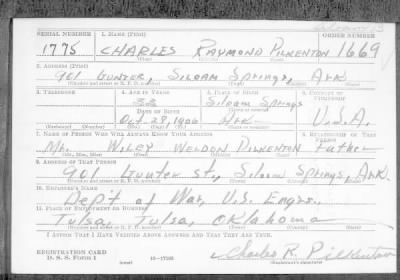 SERIAL NUMBER 1. NAME (Print) ORDER NUMBER
1775 CHARLES RAYMOND PILKENTON 1669
(First) (Middle) (Last)
2. ADDRESS (Print)
901 GUNTER, SILOAM SPRINGS, ARK
3. TELEPHONE 4. AGE IN YEARS 5. PLACE OF BIRTH 6. COUNTRY OF CITIZENSHIP
Siloam Springs
DATE OF BIRTH
Oct. 28, Ark U.S.A.
7. NAME OF PERSON WHO WILL ALWAYS KNOW YOUR ADDRESS 8. RELATIONSHIP OF THAT PERSON
Mr. WILEY WELDON PILKENTON Father
9. ADDRESS OF THAT PERSON
901 Gunter St., Siloam Springs, Ark.
10. EMPLOYER'S NAME
Dep't of War, U.S. Engrs.
11. PLACE OF EMPLOYMENT OR BUSINESS
Tulsa, Tulsa, Oklahoma
I AFFIRM THAT I HAVE VERIFIED ABOVE ANSWERS AND THAT THEY ARE TRUE.
REGISTRATION CARD
D. S. S. FORM 1 Charles R. Pilkenton
(Registrant's signature)